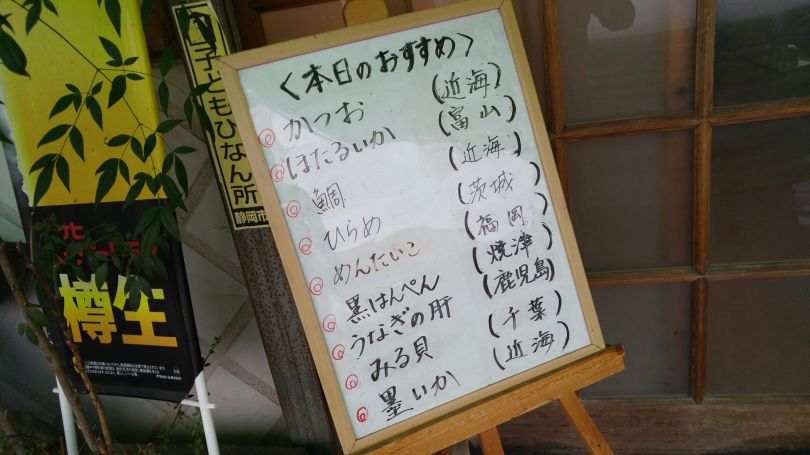 〈本日のおすすめ〉
かつお (近海)
ほたるいか (富山)
鯛 (近海)
ひらめ (茨城)
めんたいこ (福岡)
黒はんぺん (焼津)
うなぎの肝 (鹿児島)
みる貝 (千葉)
墨いか (近海)
子どもひなん所
静岡市
樽生